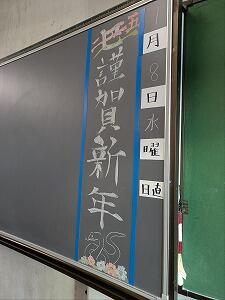 1月8日水曜
日直
謹賀新年